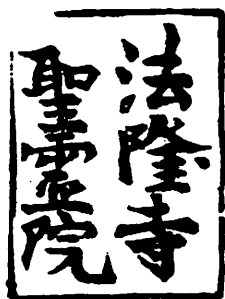 法隆寺
聖霊院